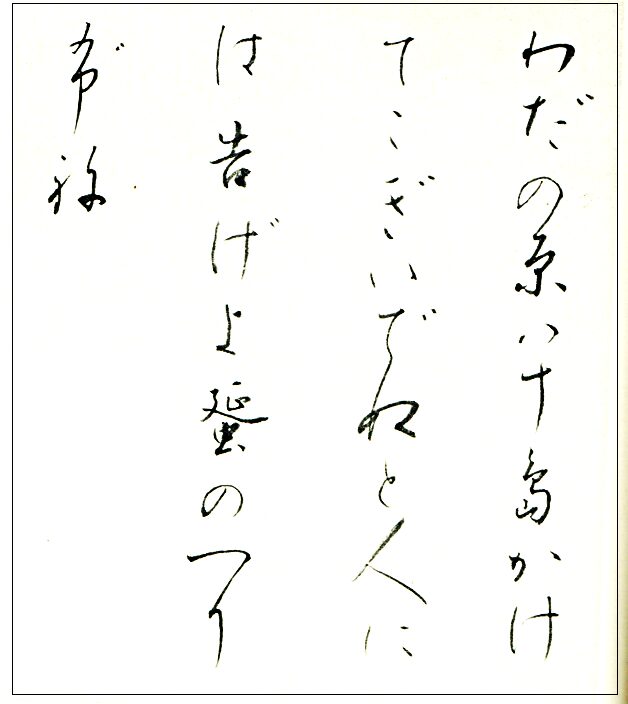 わだの原八十島かけ
てこぎいでぬと人に
は告げよ蜑のつり
ぶね